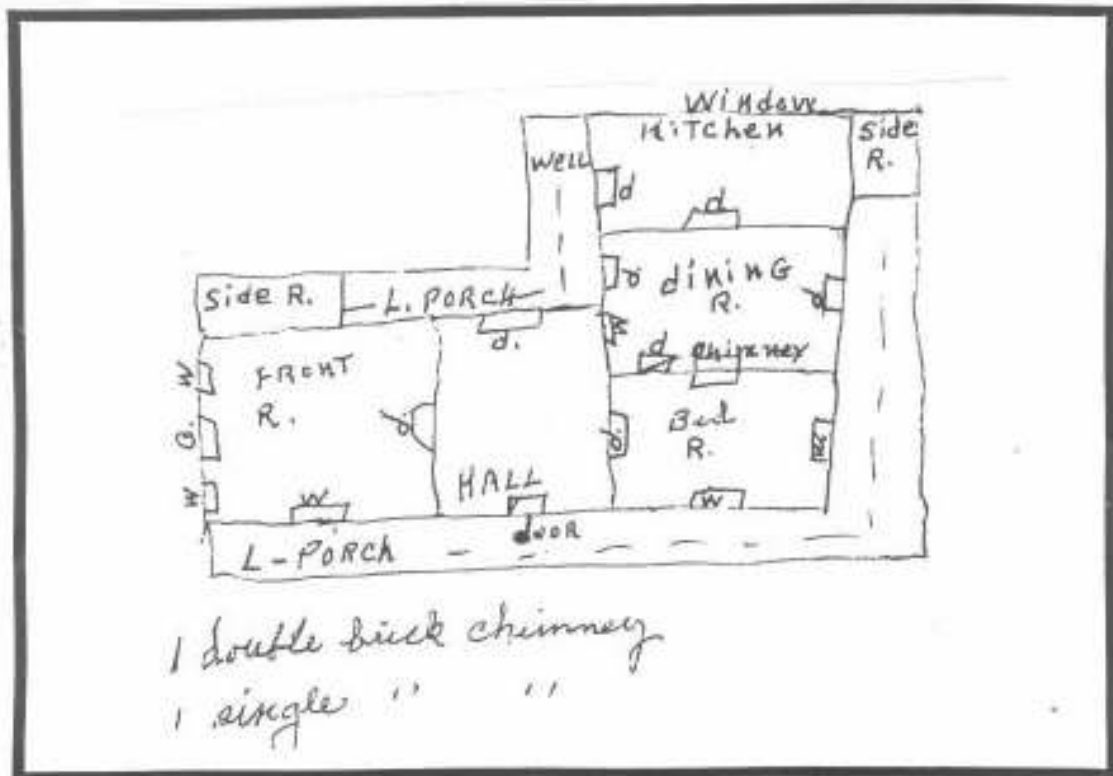 Window
KiTchen
Side
R.
well
d
d
dining
R.
d
d
Side R.
L. PORCH
d.
W
d
Chimney
W
FRONT
R.
d.
d.
Bed
R.
W
W
HALL
W
W
door
L-PORCH
1 double brick chimney
1 single " "